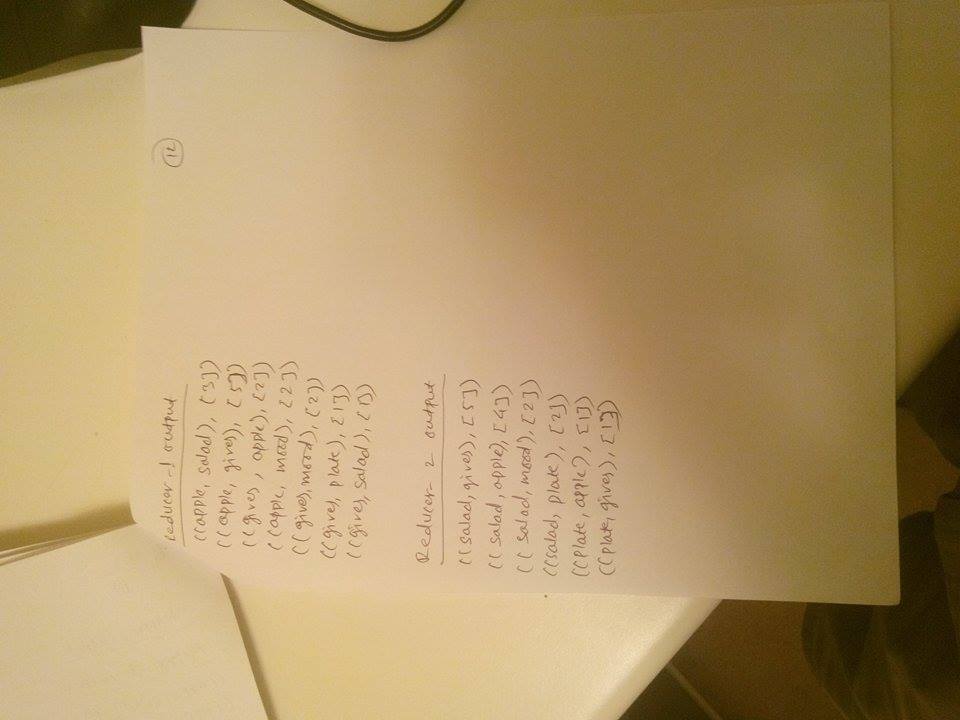 Reducer-1 output
12
((apple, salad), [3])
((apple, gives), [5])
((gives, apple), [2])
((apple, mood), [2])
((gives, mood), [2])
((gives, plate), [1])
((gives, salad), [1])
Reducer-2 output
((salad, gives), [5])
((salad, apple), [4])
((salad, mood), [2])
((salad, plate), [2])
((plate, apple), [1])
((plate, gives), [1])